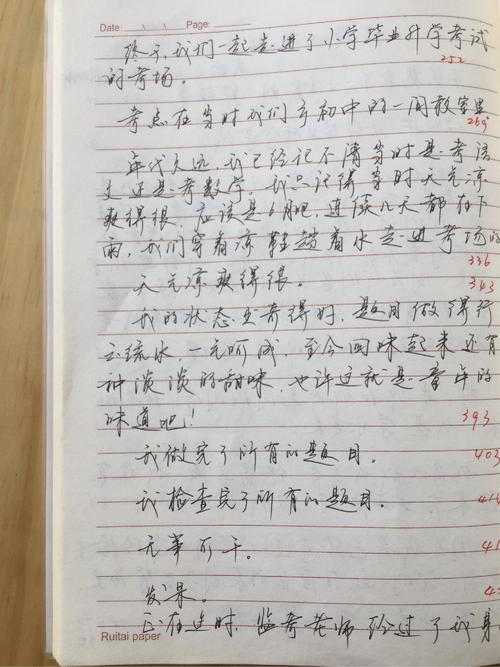 Date Page:
终于,我们一起走进了小学毕业升学考试
252
的考场。
考点在当时我们乡初中的一间教室里
269
年代久远,我已经记不清当时是考语
文还是考数学,我只记得当时天气凉
爽得很,应该是6月吧,连续几天都在下
雨,我们穿着凉鞋趟着水走进考场的
336
天气凉爽得很。
343
我的状态出奇得好,题目做得行
云流水,一气呵成,至今回味起来还有
种淡淡的甜味,也许这就是童年的
味道吧!
393
我做完了所有的题目。
403
我检查完了所有的题目。
414
无事可干。
41
发呆。
42
正在这时,监考老师经过了我身
Ruitai paper